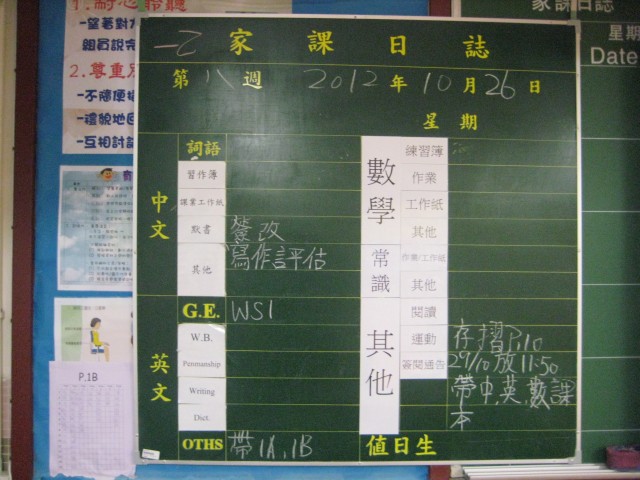 1.耐心聆聽
—望著對方
組員說完
2.尊重
—不隨便
—禮貌地回
—互相討論
P.1B
一乙 家課日誌
第 八 週 2012 年 10 月 26 日
星期
中文
詞語
習作簿
課業工作紙
默書 簽改
其他 寫作評估
英文
G.E. WS1
W.B.
Penmanship
Writing
Dict.
OTHS 帶1A,1B
數學
練習簿
作業
工作紙
其他
常識
作業/工作紙
其他
其他
閱讀
運動 存摺P.10
簽閱通告 29/10放11:50
帶中,英,數課
本
值日生
家課日誌
星期
Date